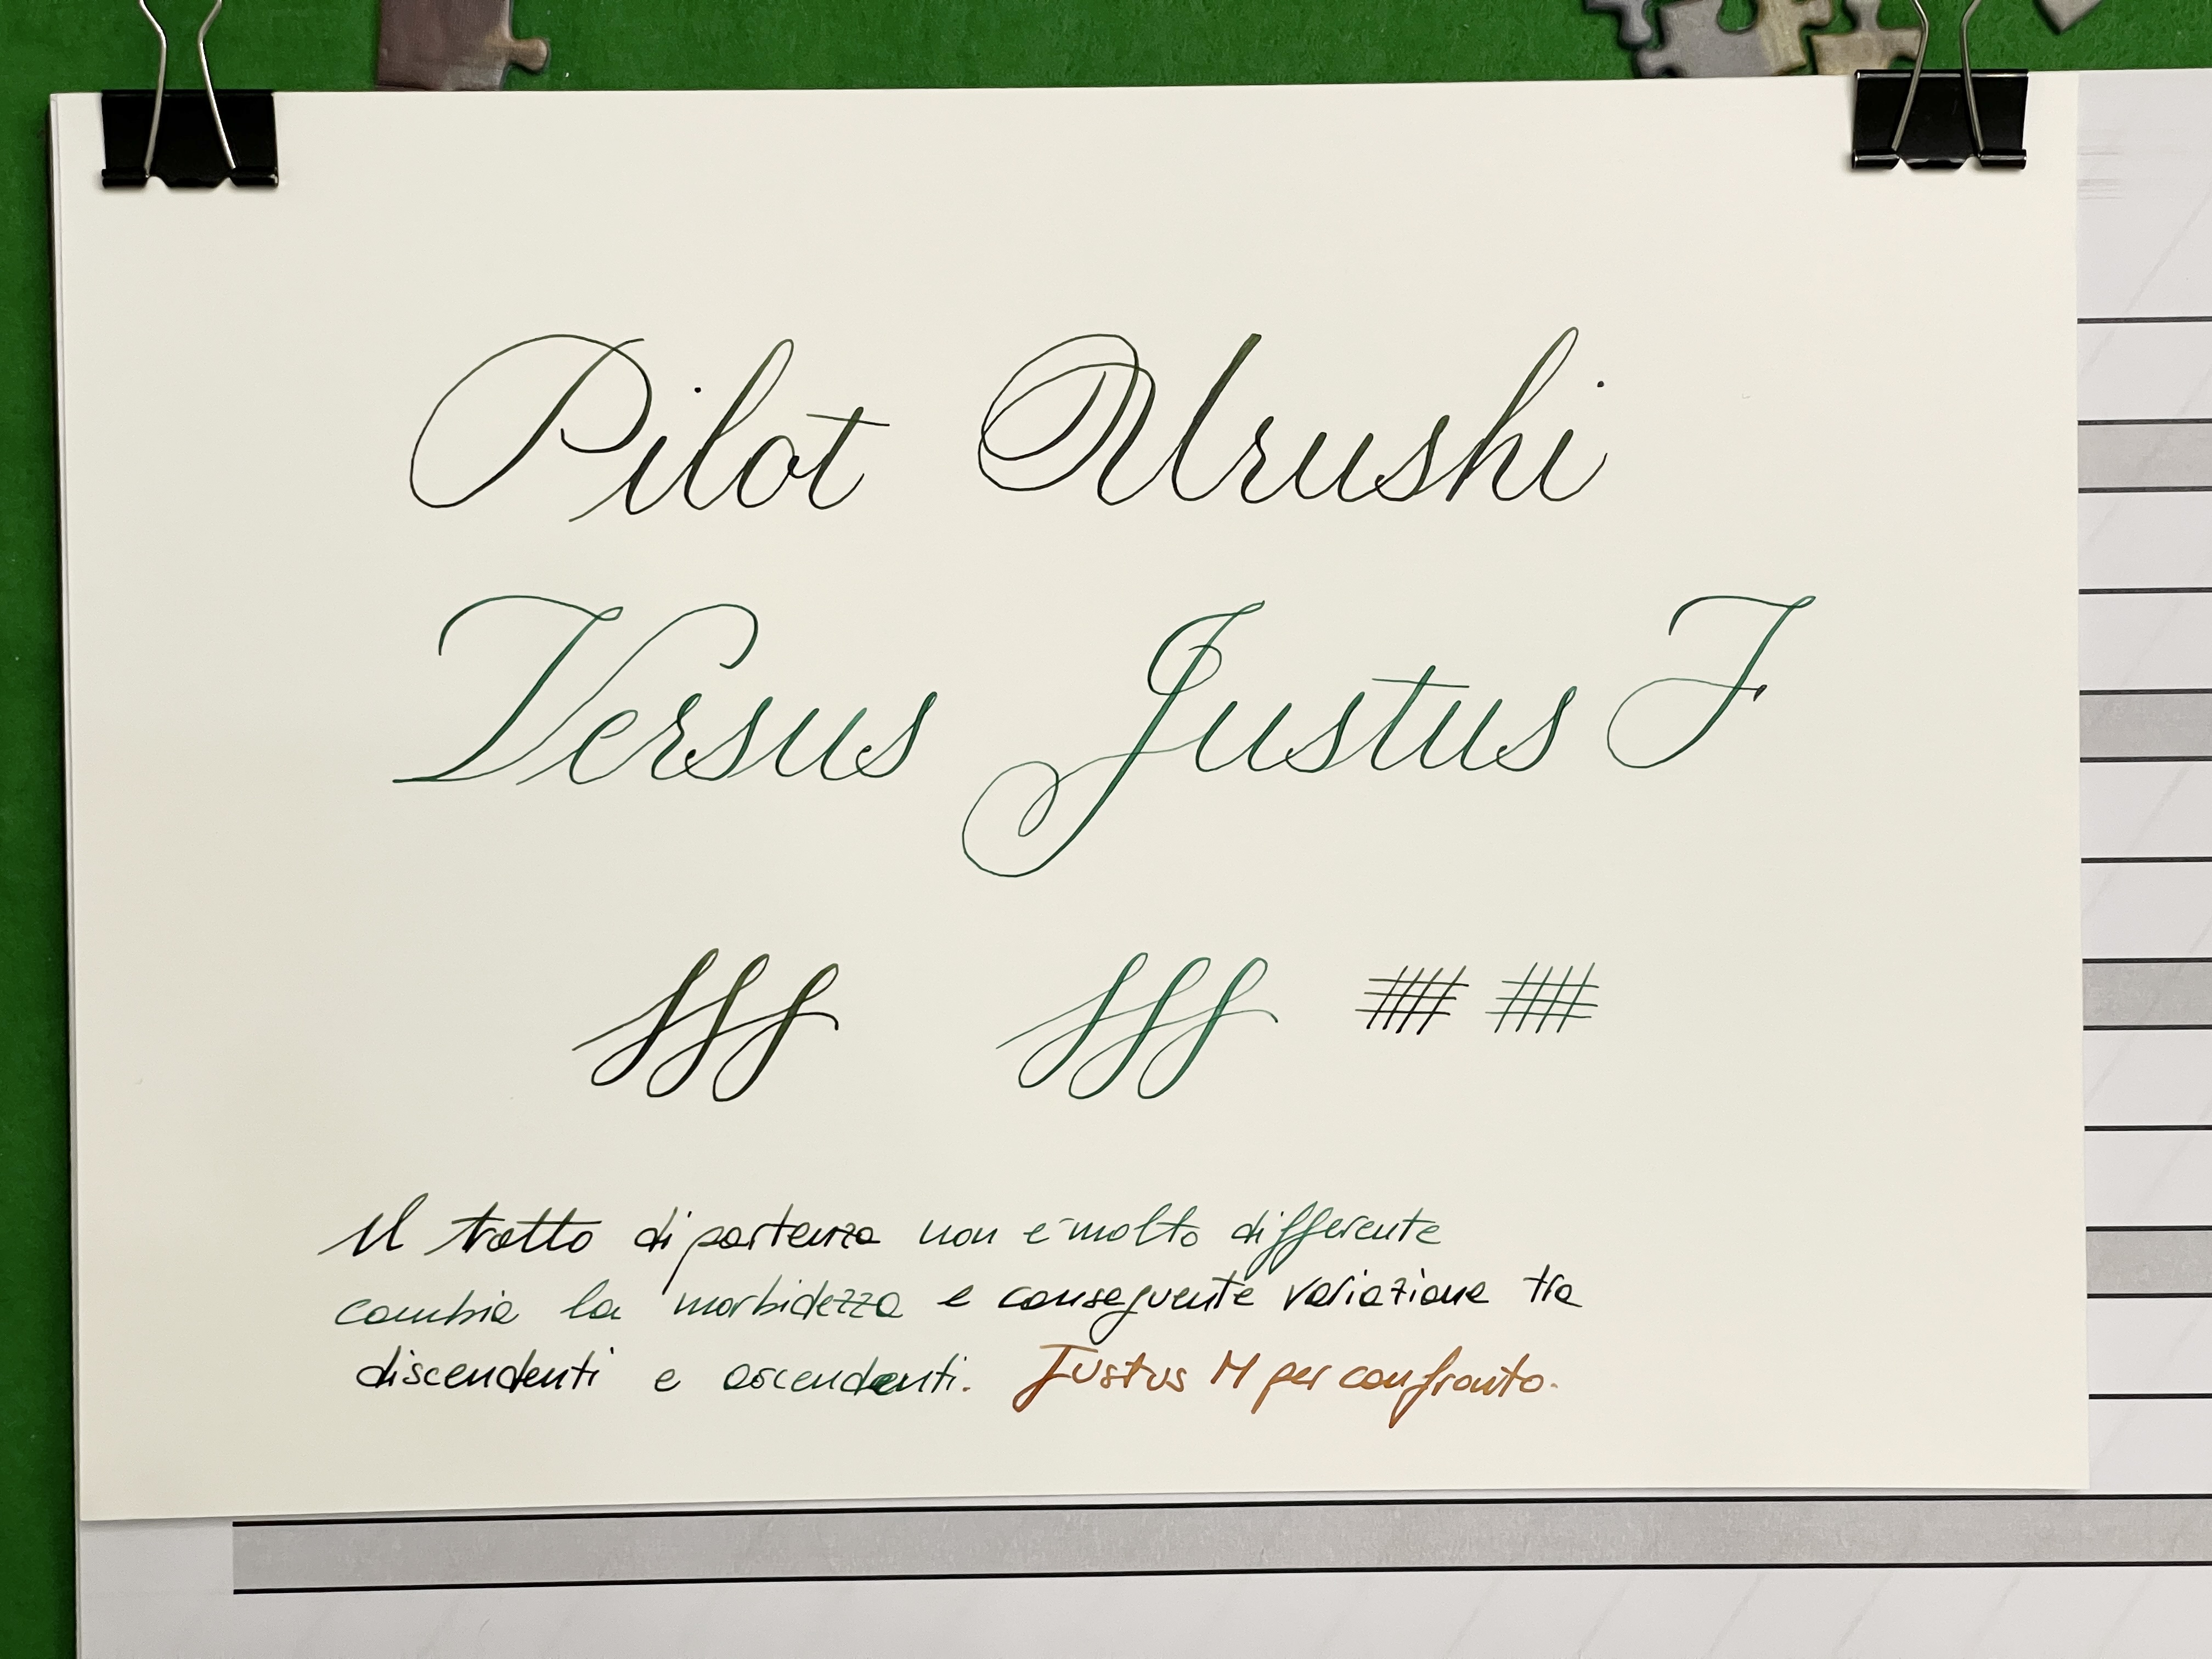 Pilot Urushi
Versus Justus F
fff fff
Il tratto di partenza non è molto differente
cambia la morbidezza e conseguente variazione tra
discendenti e ascendenti. Justus M per confronto.